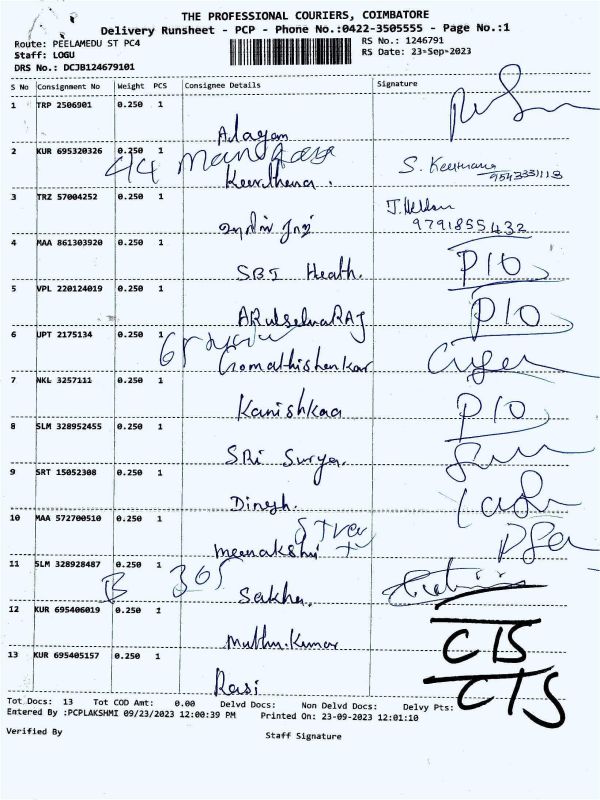 THE PROFESSIONAL COURIERS, COIMBATORE
Delivery Runsheet - PCP - Phone No.:0422-3505555 - Page No.:1
Route: PEELAMEDU ST PC4 RS No.: 1246791
Staff: LOGU RS Date: 23-Sep-2023
DRS No.: DCJB124679101
S No Consignment No Weight PCS Consignee Details Signature
1 TRP 2506901 0.250 1
2 KUR 695320326 0.250 1
Keerthana. S. Keerthana 9543331113
3 TRZ 57004252 0.250 1
9791855432
4 MAA 861303920 0.250 1
SBI Heath. P10
5 VPL 220124019 0.250 1
ARulselvaRAJ P10
6 UPT 2175134 0.250 1
Gomathishenkar
7 NKL 3257111 0.250 1
Kanishkaa P10
8 SLM 328952455 0.250 1
SRi Surya.
9 SRT 15052308 0.250 1
Dinesh.
10 MAA 572700510 0.250 1
meenakshi
11 SLM 328928487 0.250 1
B 305
Sakha.
12 KUR 695406019 0.250 1
Muthu.Kumar CTS
13 KUR 695405157 0.250 1
Rasi CTS
Tot Docs: 13 Tot COD Amt: 0.00 Delvd Docs: Non Delvd Docs: Delvy Pts:
Entered By :PCPLAKSHMI 09/23/2023 12:00:39 PM Printed On: 23-09-2023 12:01:10
Verified By Staff Signature